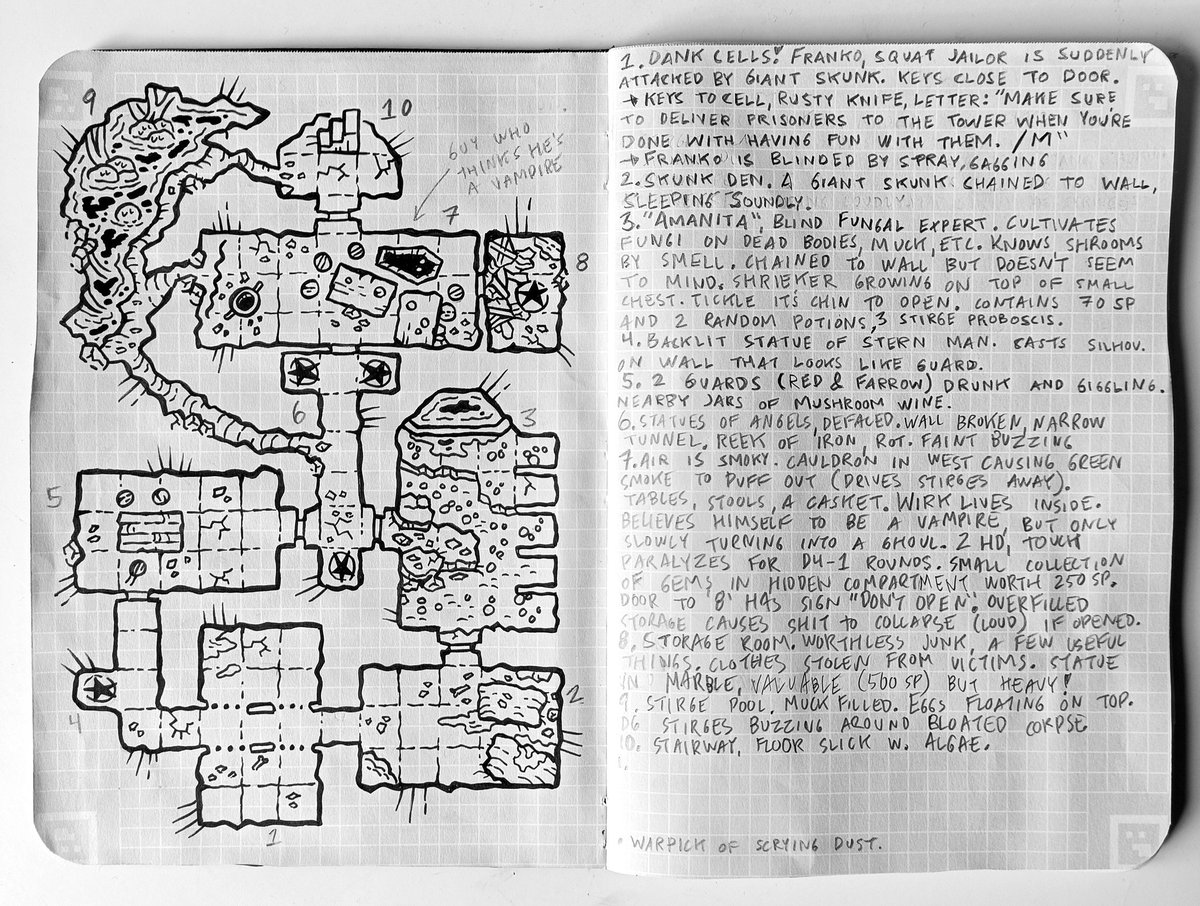 9
10
GUY WHO
THINKS HE'S
A VAMPIRE
7
8
6
3
5
4
2
1
1. DANK CELLS! FRANKO, SQUAT JAILOR IS SUDDENLY
ATTACKED BY GIANT SKUNK. KEYS CLOSE TO DOOR.
→ KEYS TO CELL, RUSTY KNIFE, LETTER: "MAKE SURE
TO DELIVER PRISONERS TO THE TOWER WHEN YOU'RE
DONE WITH HAVING FUN WITH THEM. /M"
→ FRANKO IS BLINDED BY SPRAY, GAGGING
2. SKUNK DEN. A GIANT SKUNK CHAINED TO WALL,
SLEEPING SOUNDLY.
3. "AMANITA", BLIND FUNGAL EXPERT. CULTIVATES
FUNGI ON DEAD BODIES, MUCK, ETC. KNOWS SHROOMS
BY SMELL. CHAINED TO WALL BUT DOESN'T SEEM
TO MIND. SHRIEKER GROWING ON TOP OF SMALL
CHEST. TICKLE IT'S CHIN TO OPEN. CONTAINS 70 SP
AND 2 RANDOM POTIONS, 3 STIRGE PROBOSCIS.
4. BACKLIT STATUE OF STERN MAN. CASTS SILHOU.
ON WALL THAT LOOKS LIKE GUARD.
5. 2 GUARDS (RED & FARROW) DRUNK AND GIGGLING.
NEARBY JARS OF MUSHROOM WINE.
6. STATUES OF ANGELS, DEFACED. WALL BROKEN, NARROW
TUNNEL. REEK OF IRON, ROT. FAINT BUZZING
7. AIR IS SMOKY. CAULDRON IN WEST CAUSING GREEN
SMOKE TO PUFF OUT (DRIVES STIRGES AWAY).
TABLES, STOOLS, A CASKET. WIRK LIVES INSIDE.
BELIEVES HIMSELF TO BE A VAMPIRE, BUT ONLY
SLOWLY TURNING INTO A GHOUL. 2 HD, TOUCH
PARALYZES FOR D4-1 ROUNDS. SMALL COLLECTION
OF GEMS IN HIDDEN COMPARTMENT WORTH 250 SP.
DOOR TO '8' HAS SIGN "DON'T OPEN". OVERFILLED
STORAGE CAUSES SHIT TO COLLAPSE (LOUD) IF OPENED.
8. STORAGE ROOM. WORTHLESS JUNK, A FEW USEFUL
THINGS. CLOTHES STOLEN FROM VICTIMS. STATUE
IN MARBLE, VALUABLE (500 SP) BUT HEAVY!
9. STIRGE POOL. MUCK FILLED. EGGS FLOATING ON TOP.
D6 STIRGES BUZZING AROUND BLOATED CORPSE
10. STAIRWAY, FLOOR SLICK W. ALGAE.
• WARPICK OF SCRYING DUST.